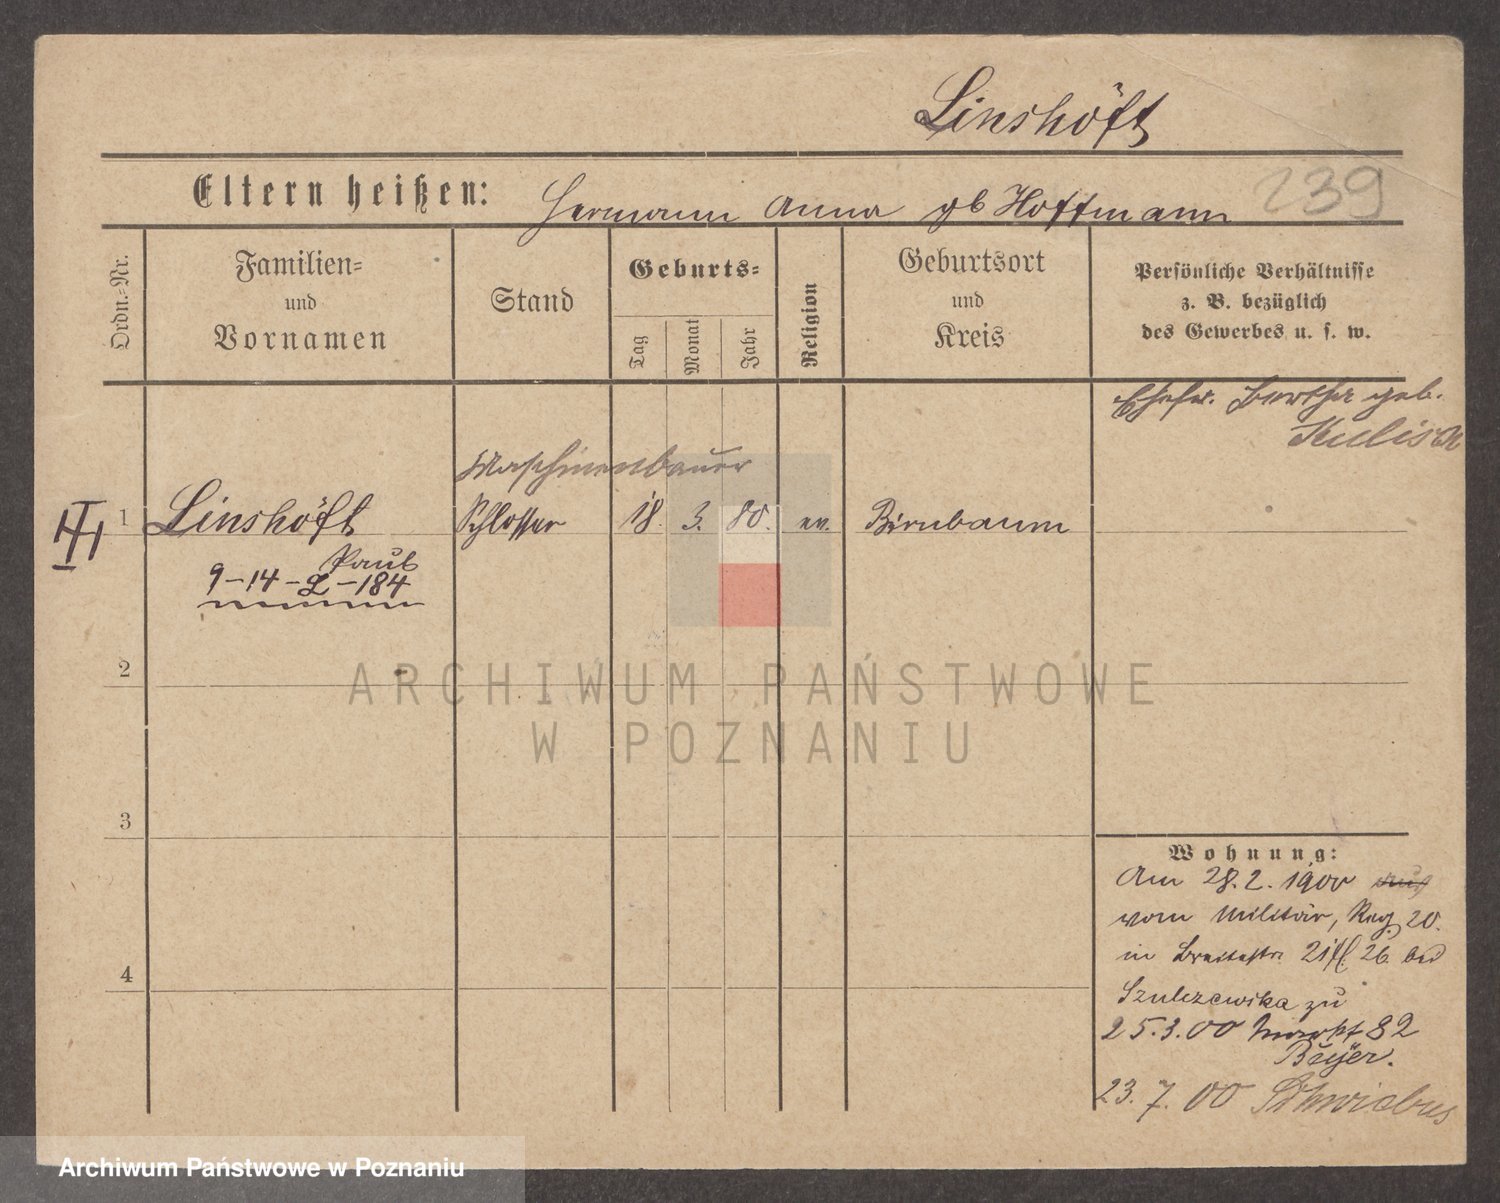 Linshöft
Eltern heißen: Hermann Anna gb Hoffmann
239
Ordn.-Nr.
Familien-
und
Vornamen
Stand
Geburts-
Tag
Monat
Jahr
Religion
Geburtsort
und
Kreis
Persönliche Verhältnisse
z. B. bezüglich
des Gewerbes u. s. w.
Ehefr. Bertha geb.
Kulisch
Maschinenbauer
III 1 Linshöft Schlosser 18. 3. 80. ev. Birnbaum
Paul
9-14-L-184
2
ARCHIWUM PAŃSTWOWE
W POZNANIU
3
4
Wohnung:
Am 28.2.1900 aus
vom Militär, Reg. 20.
in Breitestr. 21 26 bei
Szulczewska zu
25.3.00 Markt 82
Beyer.
23.7.00 Schwiebus
Archiwum Państwowe w Poznaniu